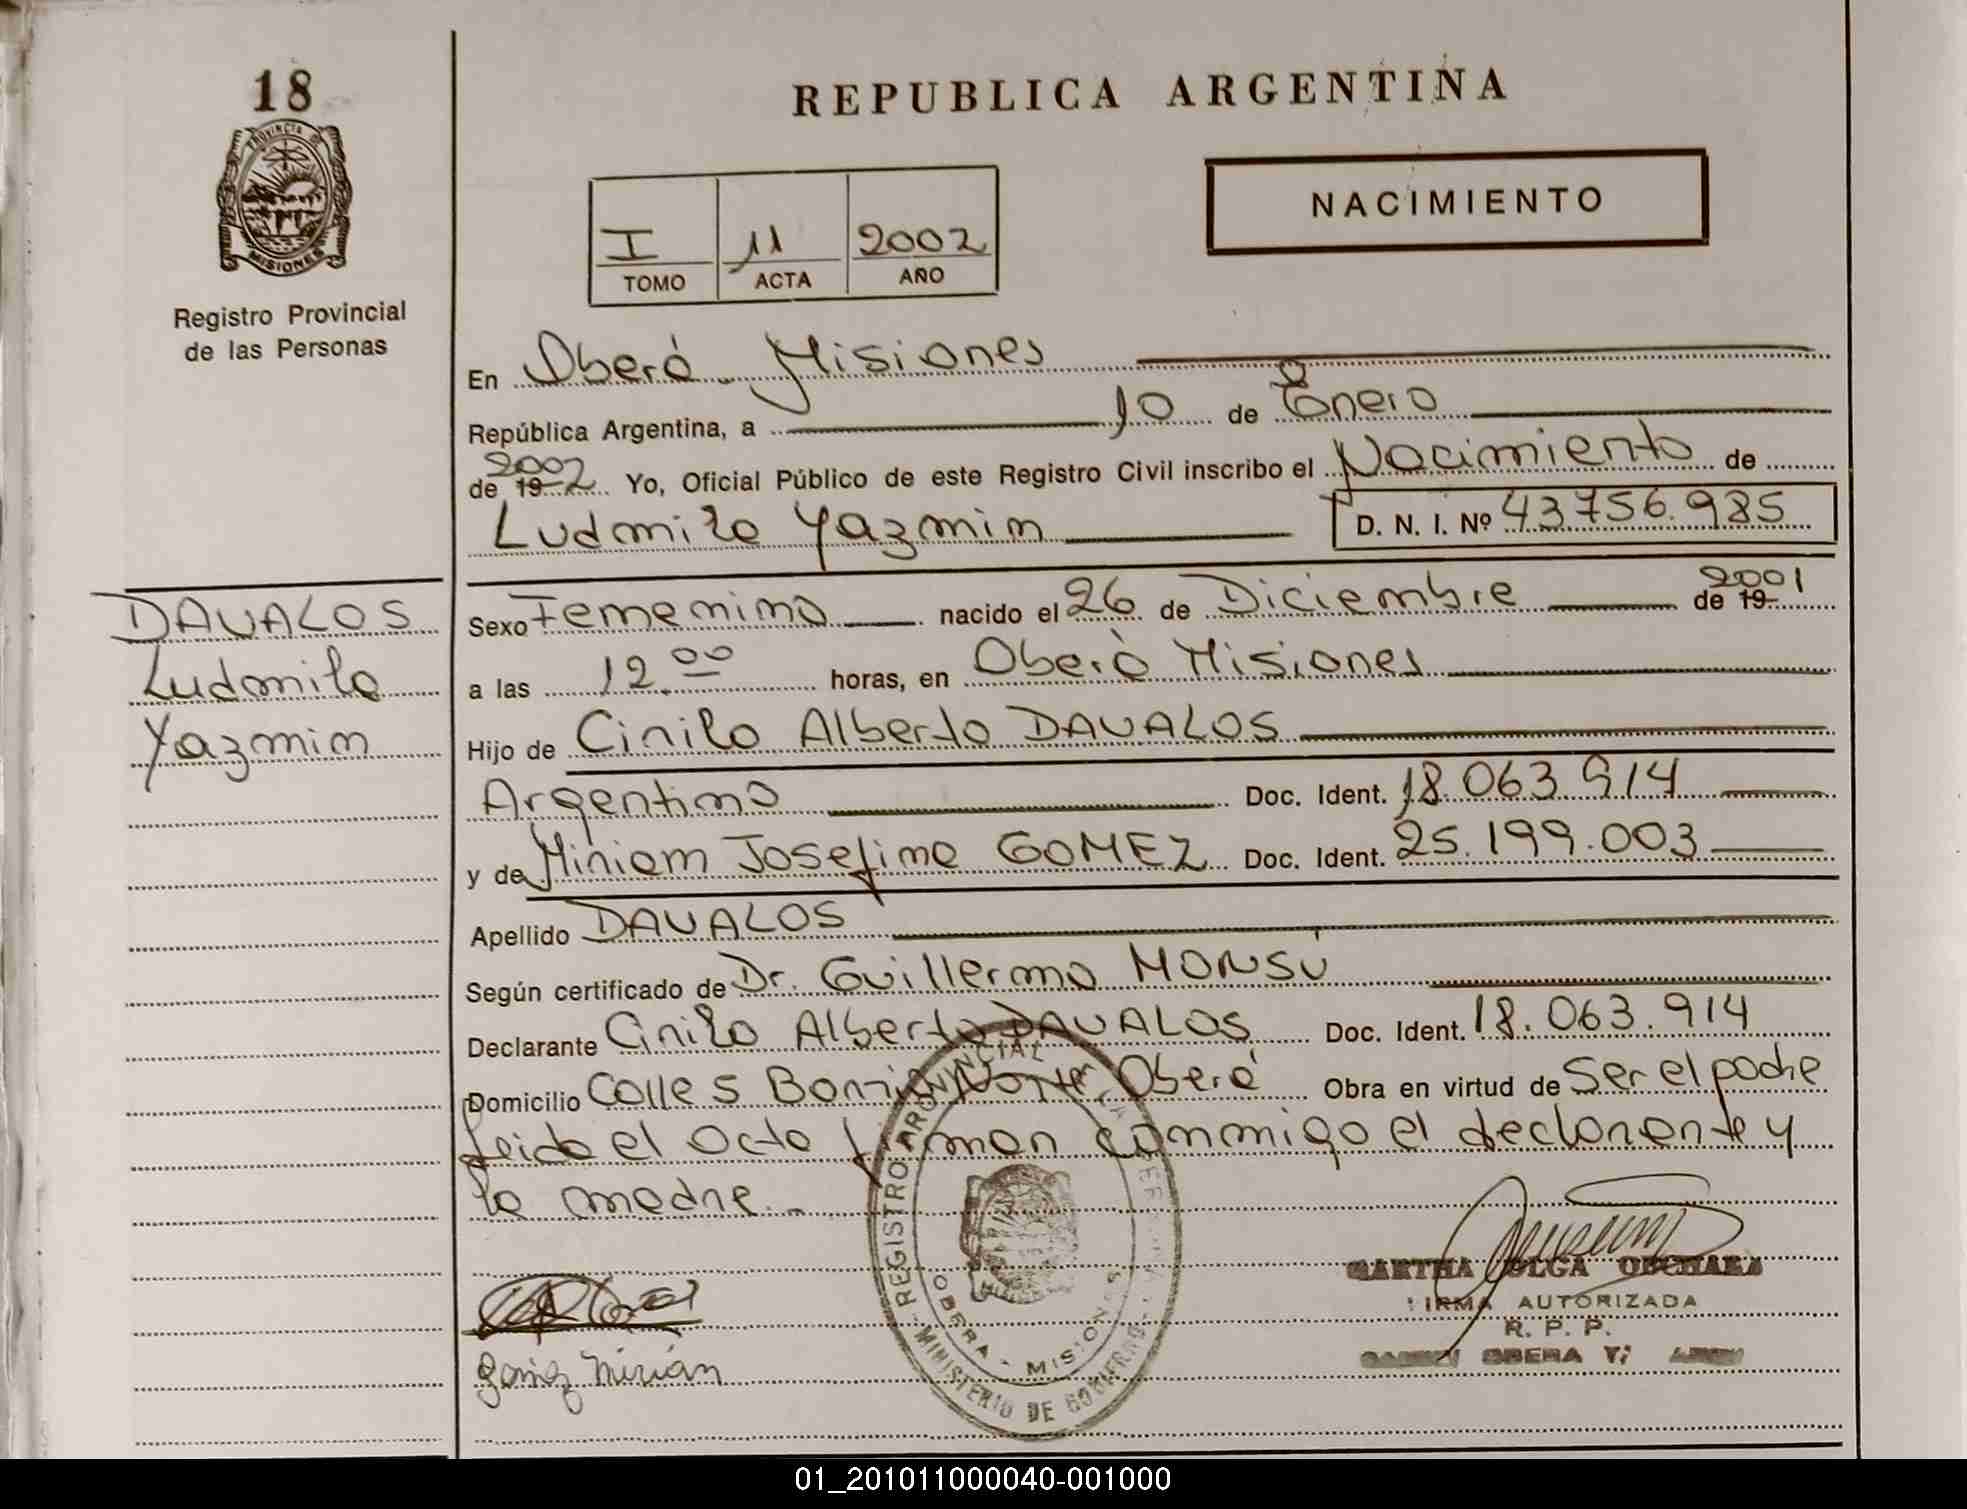 18
PROVINCIA D
MISIONES
Registro Provincial
de las Personas
REPUBLICA ARGENTINA
NACIMIENTO
I 11 2002
TOMO ACTA AÑO
En Oberá Misiones
República Argentina, a 10 de Enero
2002
de 19 2 Yo, Oficial Público de este Registro Civil inscribo el Nacimiento de
Ludmila Yazmin D. N. I. Nº 43756.985
DAVALOS
Ludmila
Yazmin
Sexo Femenino nacido el 26 de Diciembre de 19 2001
a las 12.00 horas, en Oberá Misiones
Hijo de Cirilo Alberto DAVALOS
Argentino Doc. Ident. 18.063.914
y de Miriam Josefina GOMEZ Doc. Ident. 25.199.003
Apellido DAVALOS
Según certificado de Dr. Guillermo MONSÚ
Declarante Cirilo Alberto DAVALOS Doc. Ident. 18.063.914
Domicilio Calle S Oberá Obra en virtud de Ser el padre
leida el acta firman conmigo el declarante y
la madre.
REGISTRO PROVINCIAL
MINISTERIO DE GOBIERNO
OBERA - MISIONES
OLGA
FIRMA AUTORIZADA
R. P. P.
OBERA
Gomez Mirian
01_201011000040-001000